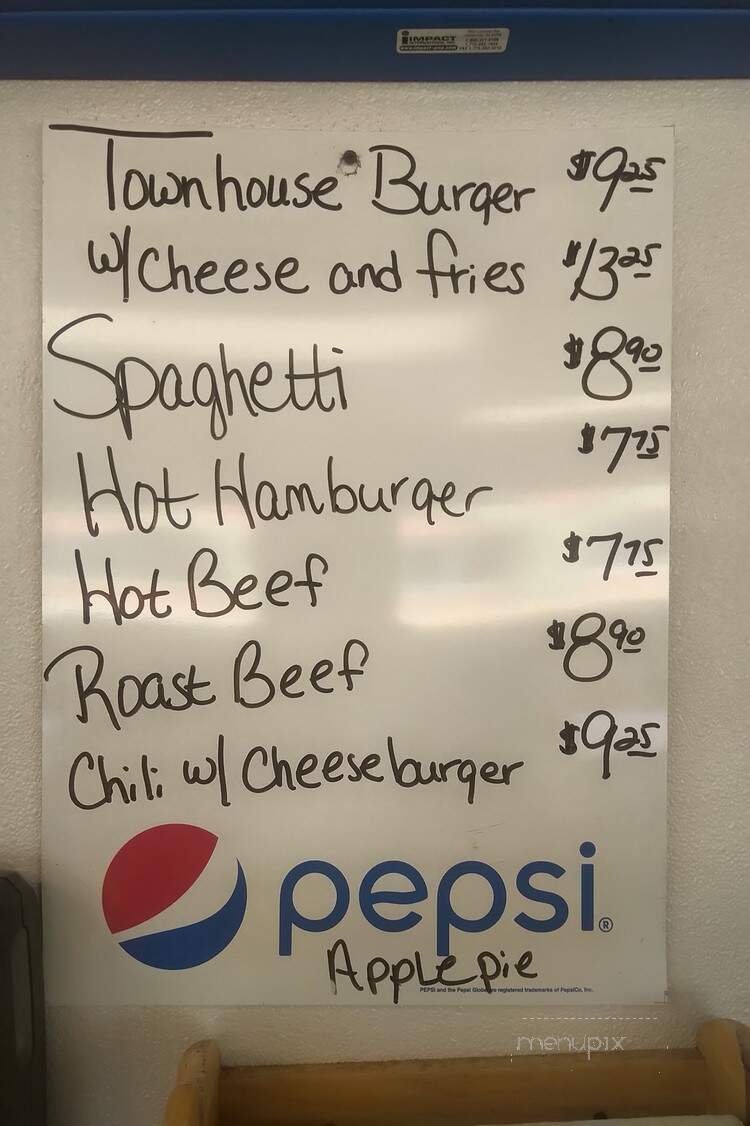 IMPACT
Townhouse Burger $9.25
w/ Cheese and fries $13.25
Spaghetti $8.90
Hot Hamburger $7.75
Hot Beef $7.75
Roast Beef $8.90
Chili w/ Cheeseburger $9.25
pepsi®
Apple pie
PEPSI and the Pepsi Globe are registered trademarks of PepsiCo, Inc.
menupix